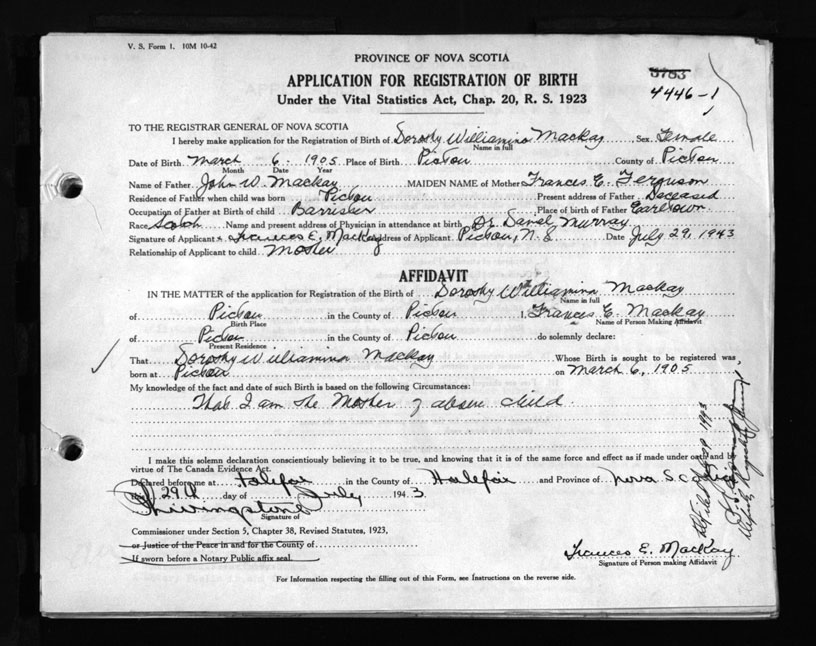 V. S. Form 1. 10M 10-42
PROVINCE OF NOVA SCOTIA
APPLICATION FOR REGISTRATION OF BIRTH
Under the Vital Statistics Act, Chap. 20, R. S. 1923
3783
4446-1
TO THE REGISTRAR GENERAL OF NOVA SCOTIA
I hereby make application for the Registration of Birth of Dorothy Williamina Mackay Sex Female
Name in full
Date of Birth March 6. 1905 Place of Birth Pictou County of Pictou
Month Date Year
Name of Father John W. Mackay MAIDEN NAME of Mother Frances E. Ferguson
Residence of Father when child was born Pictou Present address of Father Deceased
Occupation of Father at Birth of child Barrister Place of birth of Father Earltown
Race Scotch Name and present address of Physician in attendance at birth Dr. Daniel Murray
Signature of Applicant x Frances E. Mackay Address of Applicant Pictou, N.S Date July 29, 1943
Relationship of Applicant to child Mother
AFFIDAVIT
IN THE MATTER of the application for Registration of the Birth of Dorothy Williamina Mackay
Name in full
of Pictou in the County of Pictou I, Frances E. Mackay
Birth Place Name of Person Making Affidavit
of Pictou in the County of Pictou do solemnly declare:
Present Residence
That Dorothy Williamina Mackay Whose Birth is sought to be registered was
born at Pictou on March 6, 1905
My knowledge of the fact and date of such Birth is based on the following Circumstances:
That I am the Mother of above child.
I make this solemn declaration conscientiously believing it to be true, and knowing that it is of the same force and effect as if made under oath and by
virtue of The Canada Evidence Act.
Declared before me at Halifax in the County of Halifax and Province of Nova Scotia
29th day of July 1943.
Livingstone
Signature of
Commissioner under Section 5, Chapter 38, Revised Statutes, 1923,
or Justice of the Peace in and for the County of
If sworn before a Notary Public affix seal.
Frances E. Mackay.
Signature of Person making Affidavit
For Information respecting the filling out of this Form, see Instructions on the reverse side.
1943